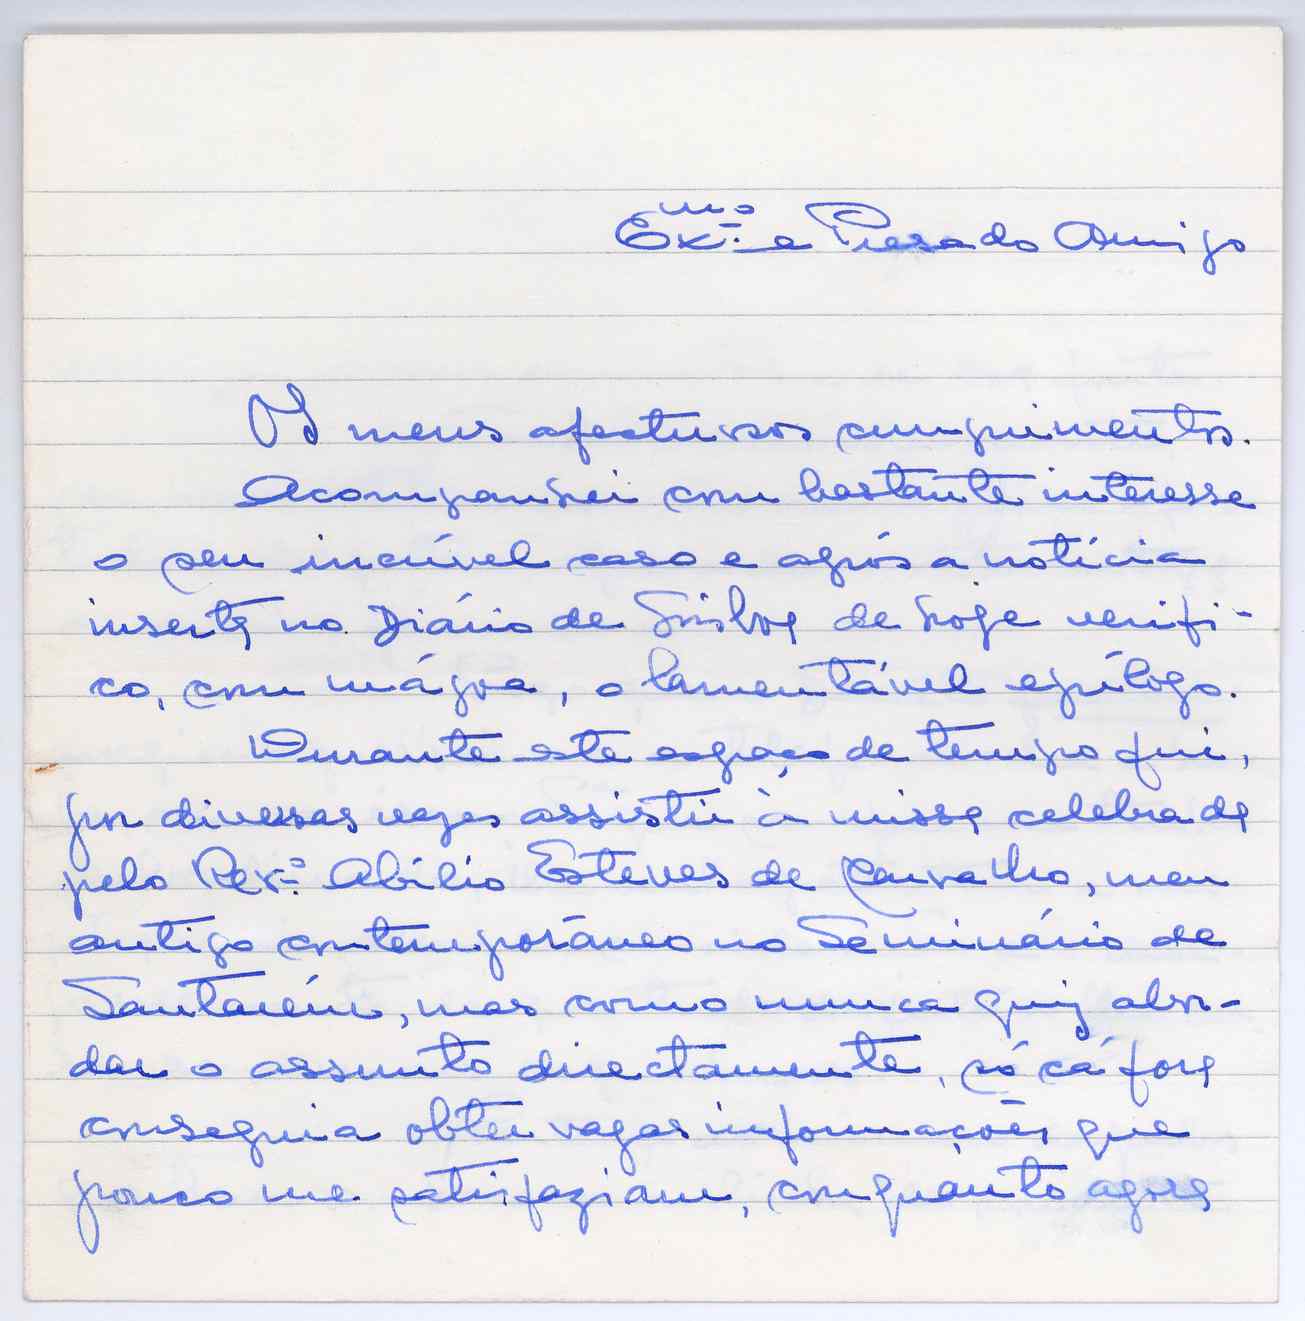 Ex.mo e Presado Amigo
Os meus afectuosos cumprimentos.
Acompanhei com bastante interesse
o seu incrível caso e após a notícia
inserta no Diário de Lisboa de hoje verifi-
co, com mágoa, o lamentável epílogo.
Durante este espaço de tempo fui,
por diversas vezes assistir à missa celebrada
pelo Rev.º Abílio Esteves de Carvalho, meu
antigo contemporâneo no Seminário de
Santarém, mas como nunca quiz abor-
dar o assunto directamente, só cá fora
conseguia obter vagas informações que
pouco me satisfaziam, conquanto agora